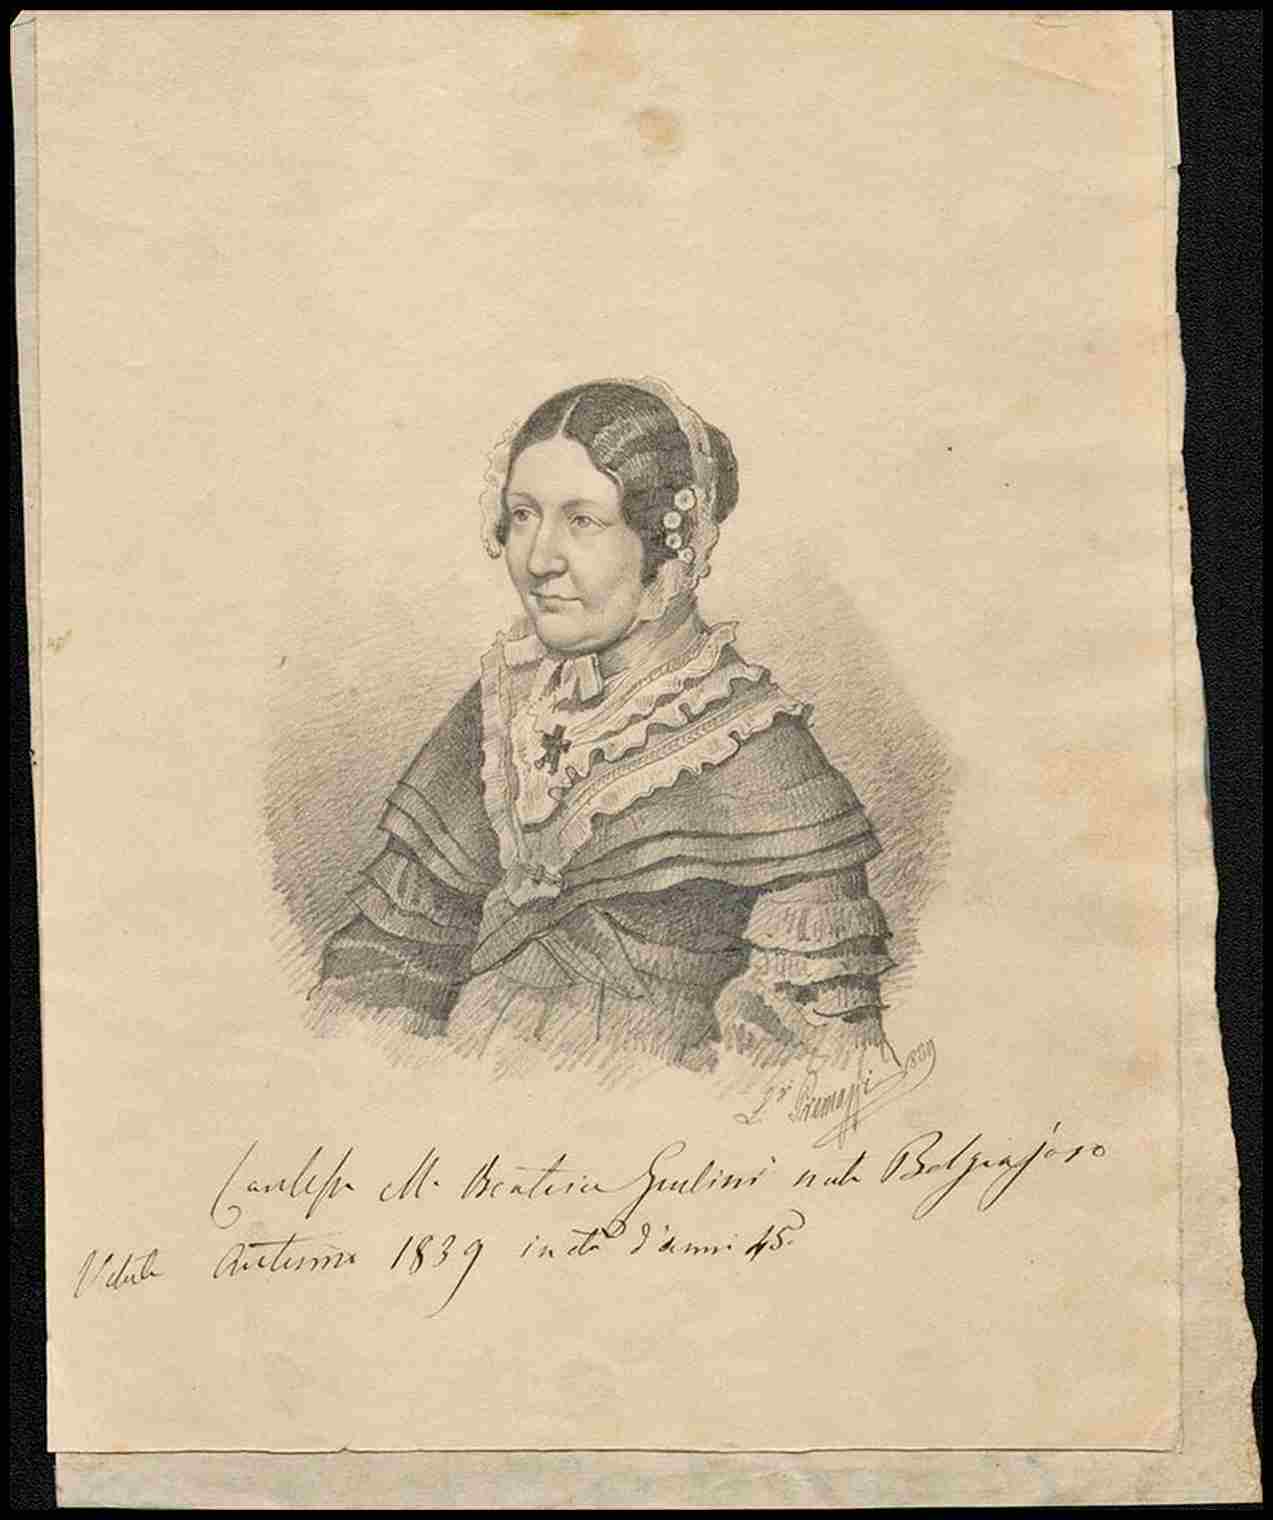 Lr Premazzi 1839
Contessa M. Beatrice Giulini nata Belgiojoso
Autunno 1839 in età d'anni 45.